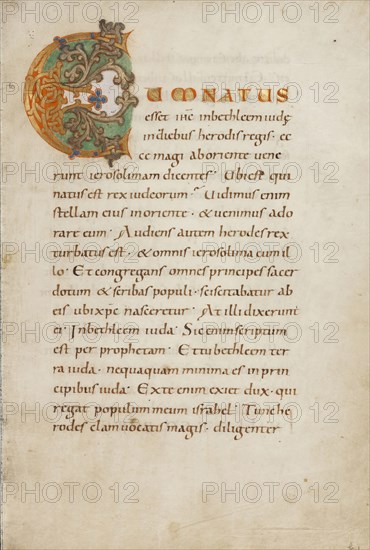 CUM NATUS
esset ihc inbethleem iudę
indiebus herodis regis· ec
ce magi aboriente uene
runt ierosolimam dicentes· Ubi est qui
natus est rex iudeorum· Uidimus enim
stellam eius in oriente· & uenimus ado
rare eum· Audiens autem herodes rex
turbatus est· & omnis ierosolima cum il
lo· Et congregans omnes principes sacer
dotum & scribas populi· sciscitabatur ab
eis ubi xpc nasceretur· At illi dixerunt
ei· In bethleem iuda· Sic enim scriptum
est per prophetam· Et tu bethleem ter
ra iuda· nequaquam minima es in prin
cipibus iuda· Ex te enim exiet dux· qui
regat populum meum israhel· Tunc he
rodes clam uocatis magis· diligenter